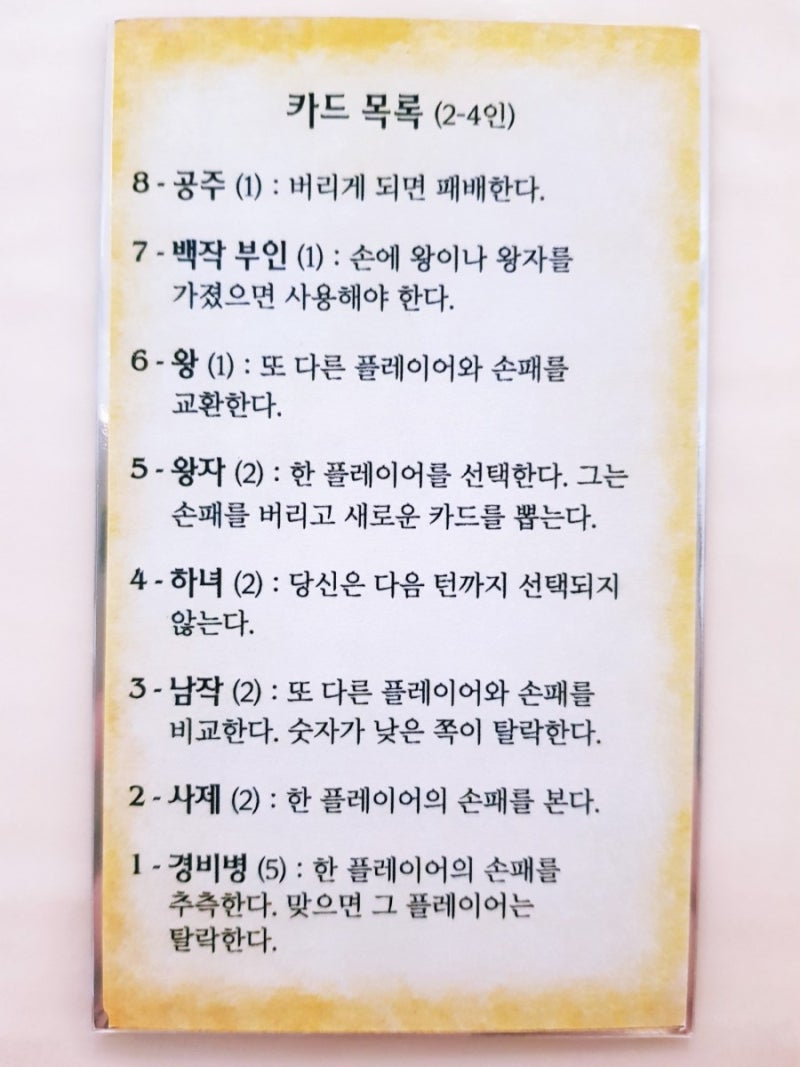 카드 목록 (2-4인)
8 - 공주 (1) : 버리게 되면 패배한다.
7 - 백작 부인 (1) : 손에 왕이나 왕자를
가졌으면 사용해야 한다.
6 - 왕 (1) : 또 다른 플레이어와 손패를
교환한다.
5 - 왕자 (2) : 한 플레이어를 선택한다. 그는
손패를 버리고 새로운 카드를 뽑는다.
4 - 하녀 (2) : 당신은 다음 턴까지 선택되지
않는다.
3 - 남작 (2) : 또 다른 플레이어와 손패를
비교한다. 숫자가 낮은 쪽이 탈락한다.
2 - 사제 (2) : 한 플레이어의 손패를 본다.
1 - 경비병 (5) : 한 플레이어의 손패를
추측한다. 맞으면 그 플레이어는
탈락한다.